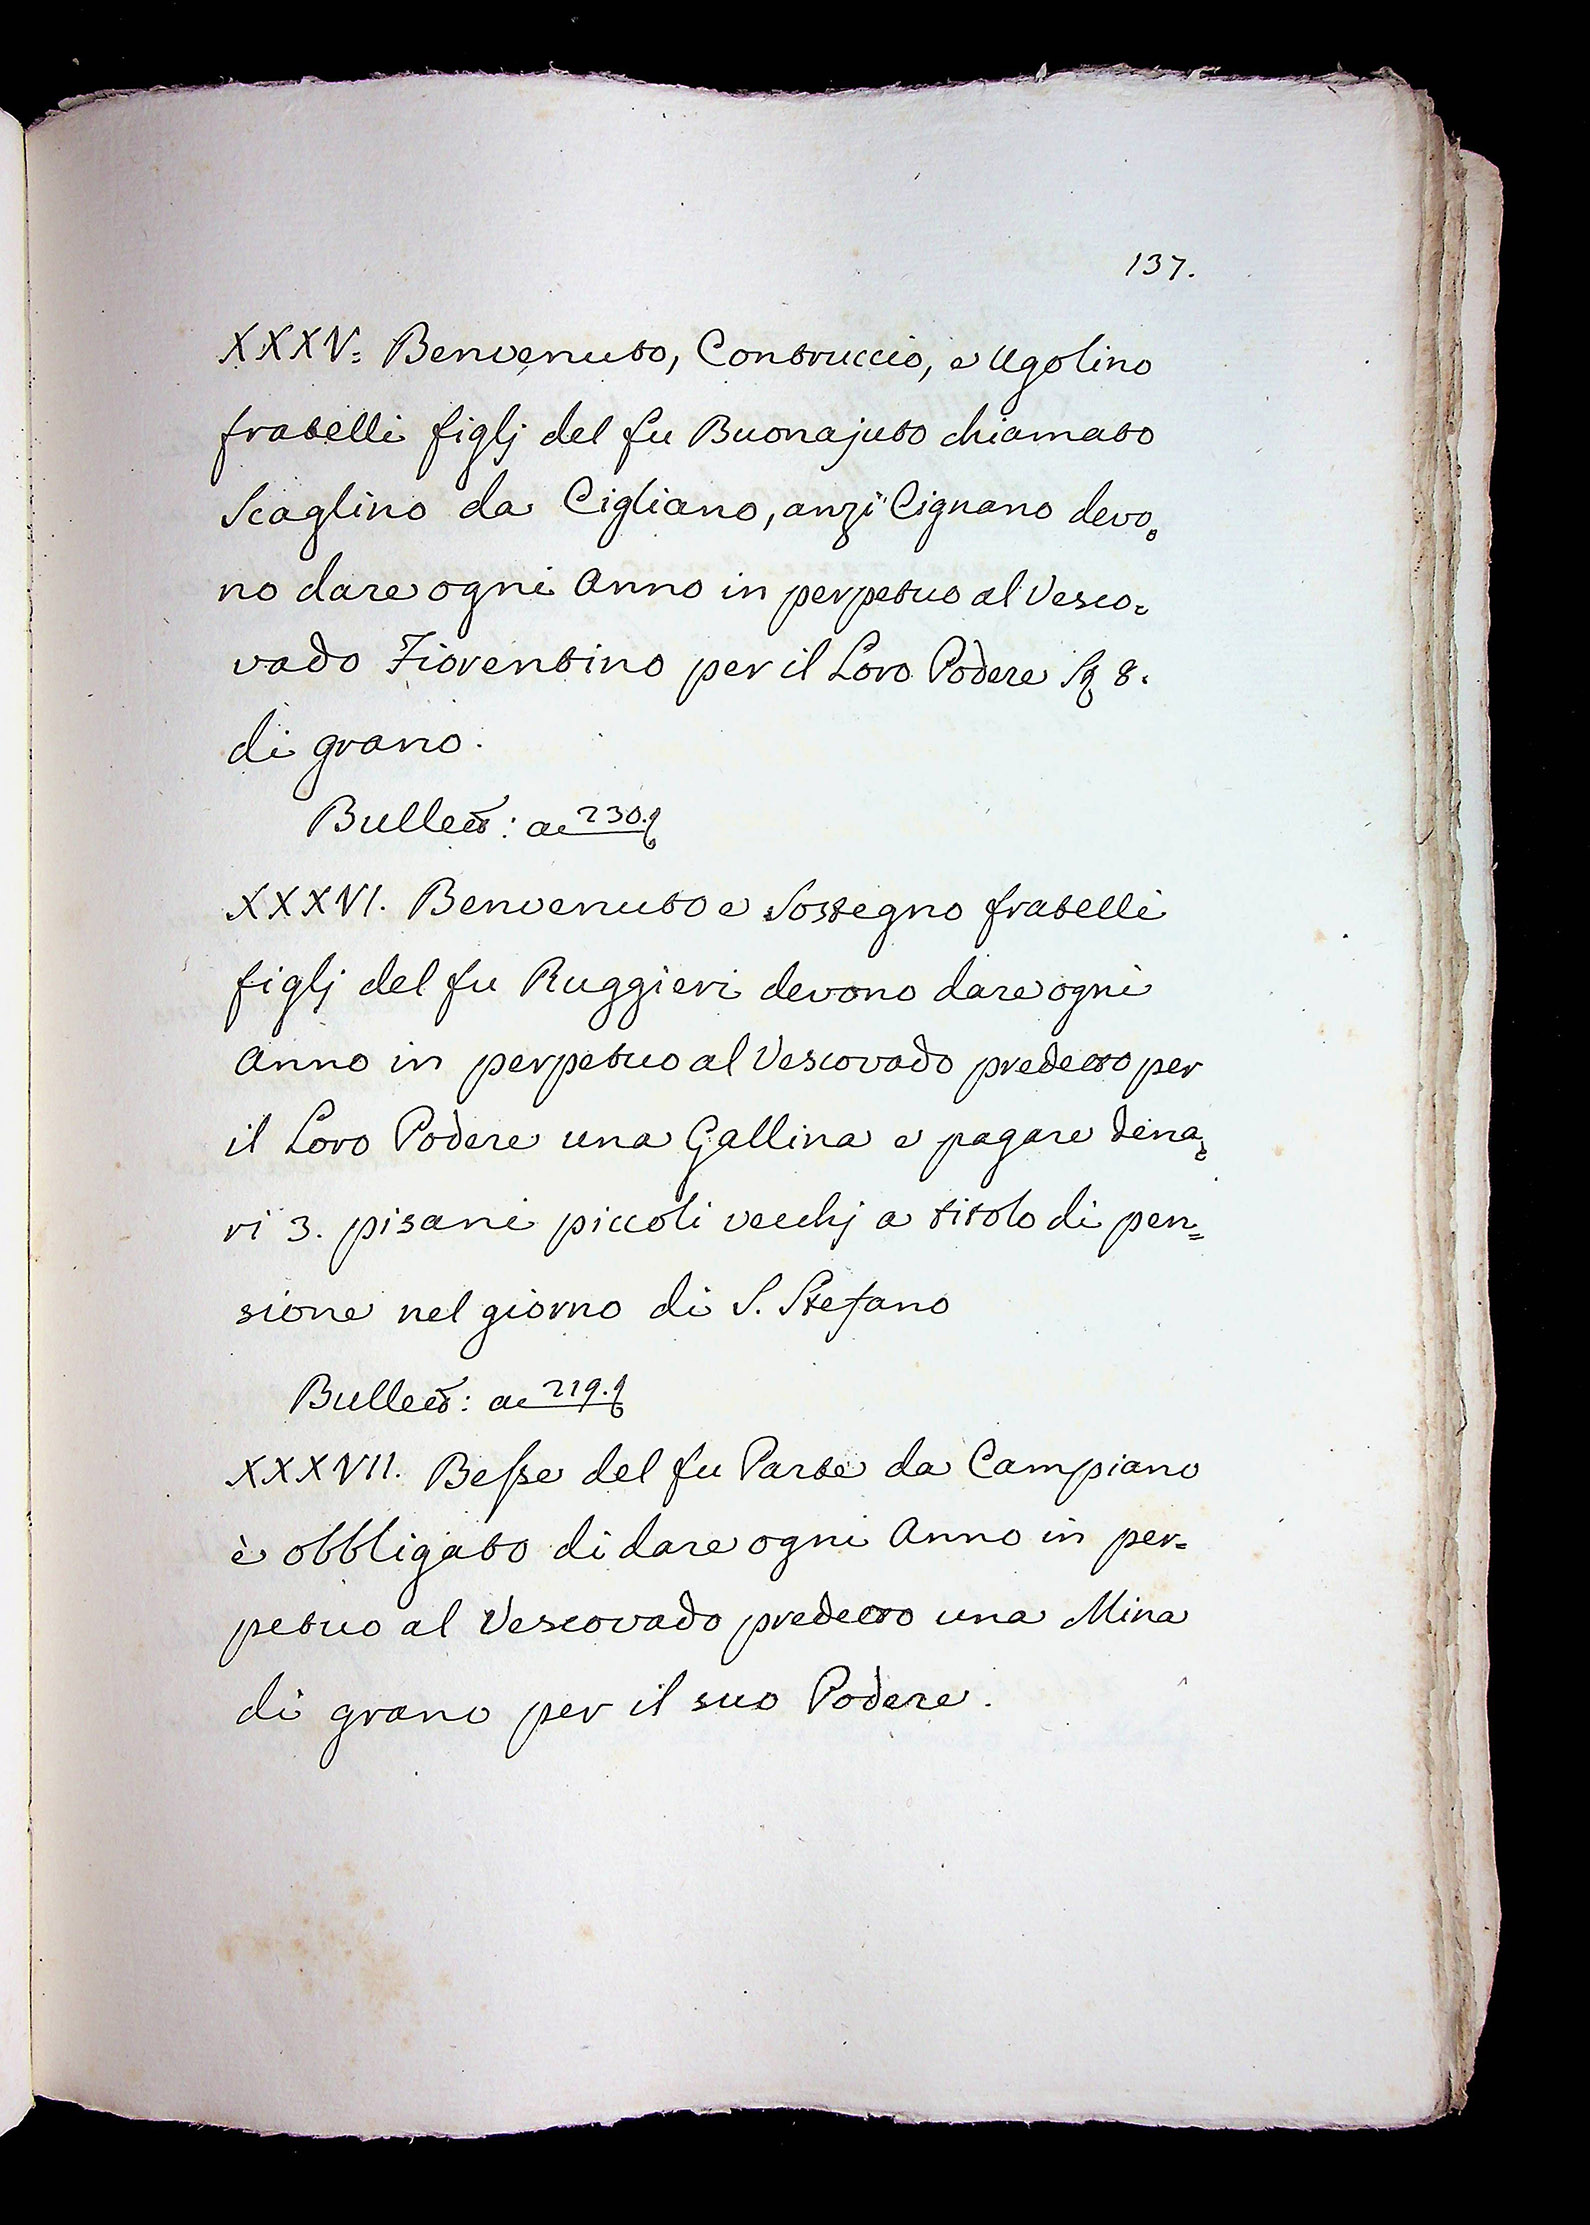 137.
XXXV. Benvenuto, Contruccio, e Ugolino
fratelli figlj del fu Buonajuto chiamato
Scaglino da Cigliano, anzi Cignano devo=
no dare ogni Anno in perpetuo al Vesco=
vado Fiorentino per il Loro Podere 8.
di grano.
Bullett: a 230.
XXXVI. Benvenuto e Sostegno fratelli
figlj del fu Ruggieri devono dare ogni
Anno in perpetuo al Vescovado predetto per
il Loro Podere una Gallina e pagare dena=
ri 3. pisani piccoli vecchj a titolo di pen=
sione nel giorno di S. Stefano
Bullett: a 219.
XXXVII. del fu Parte da Campiano
è obbligato di dare ogni Anno in per=
petuo al Vescovado predetto una Mina
di grano per il suo Podere.